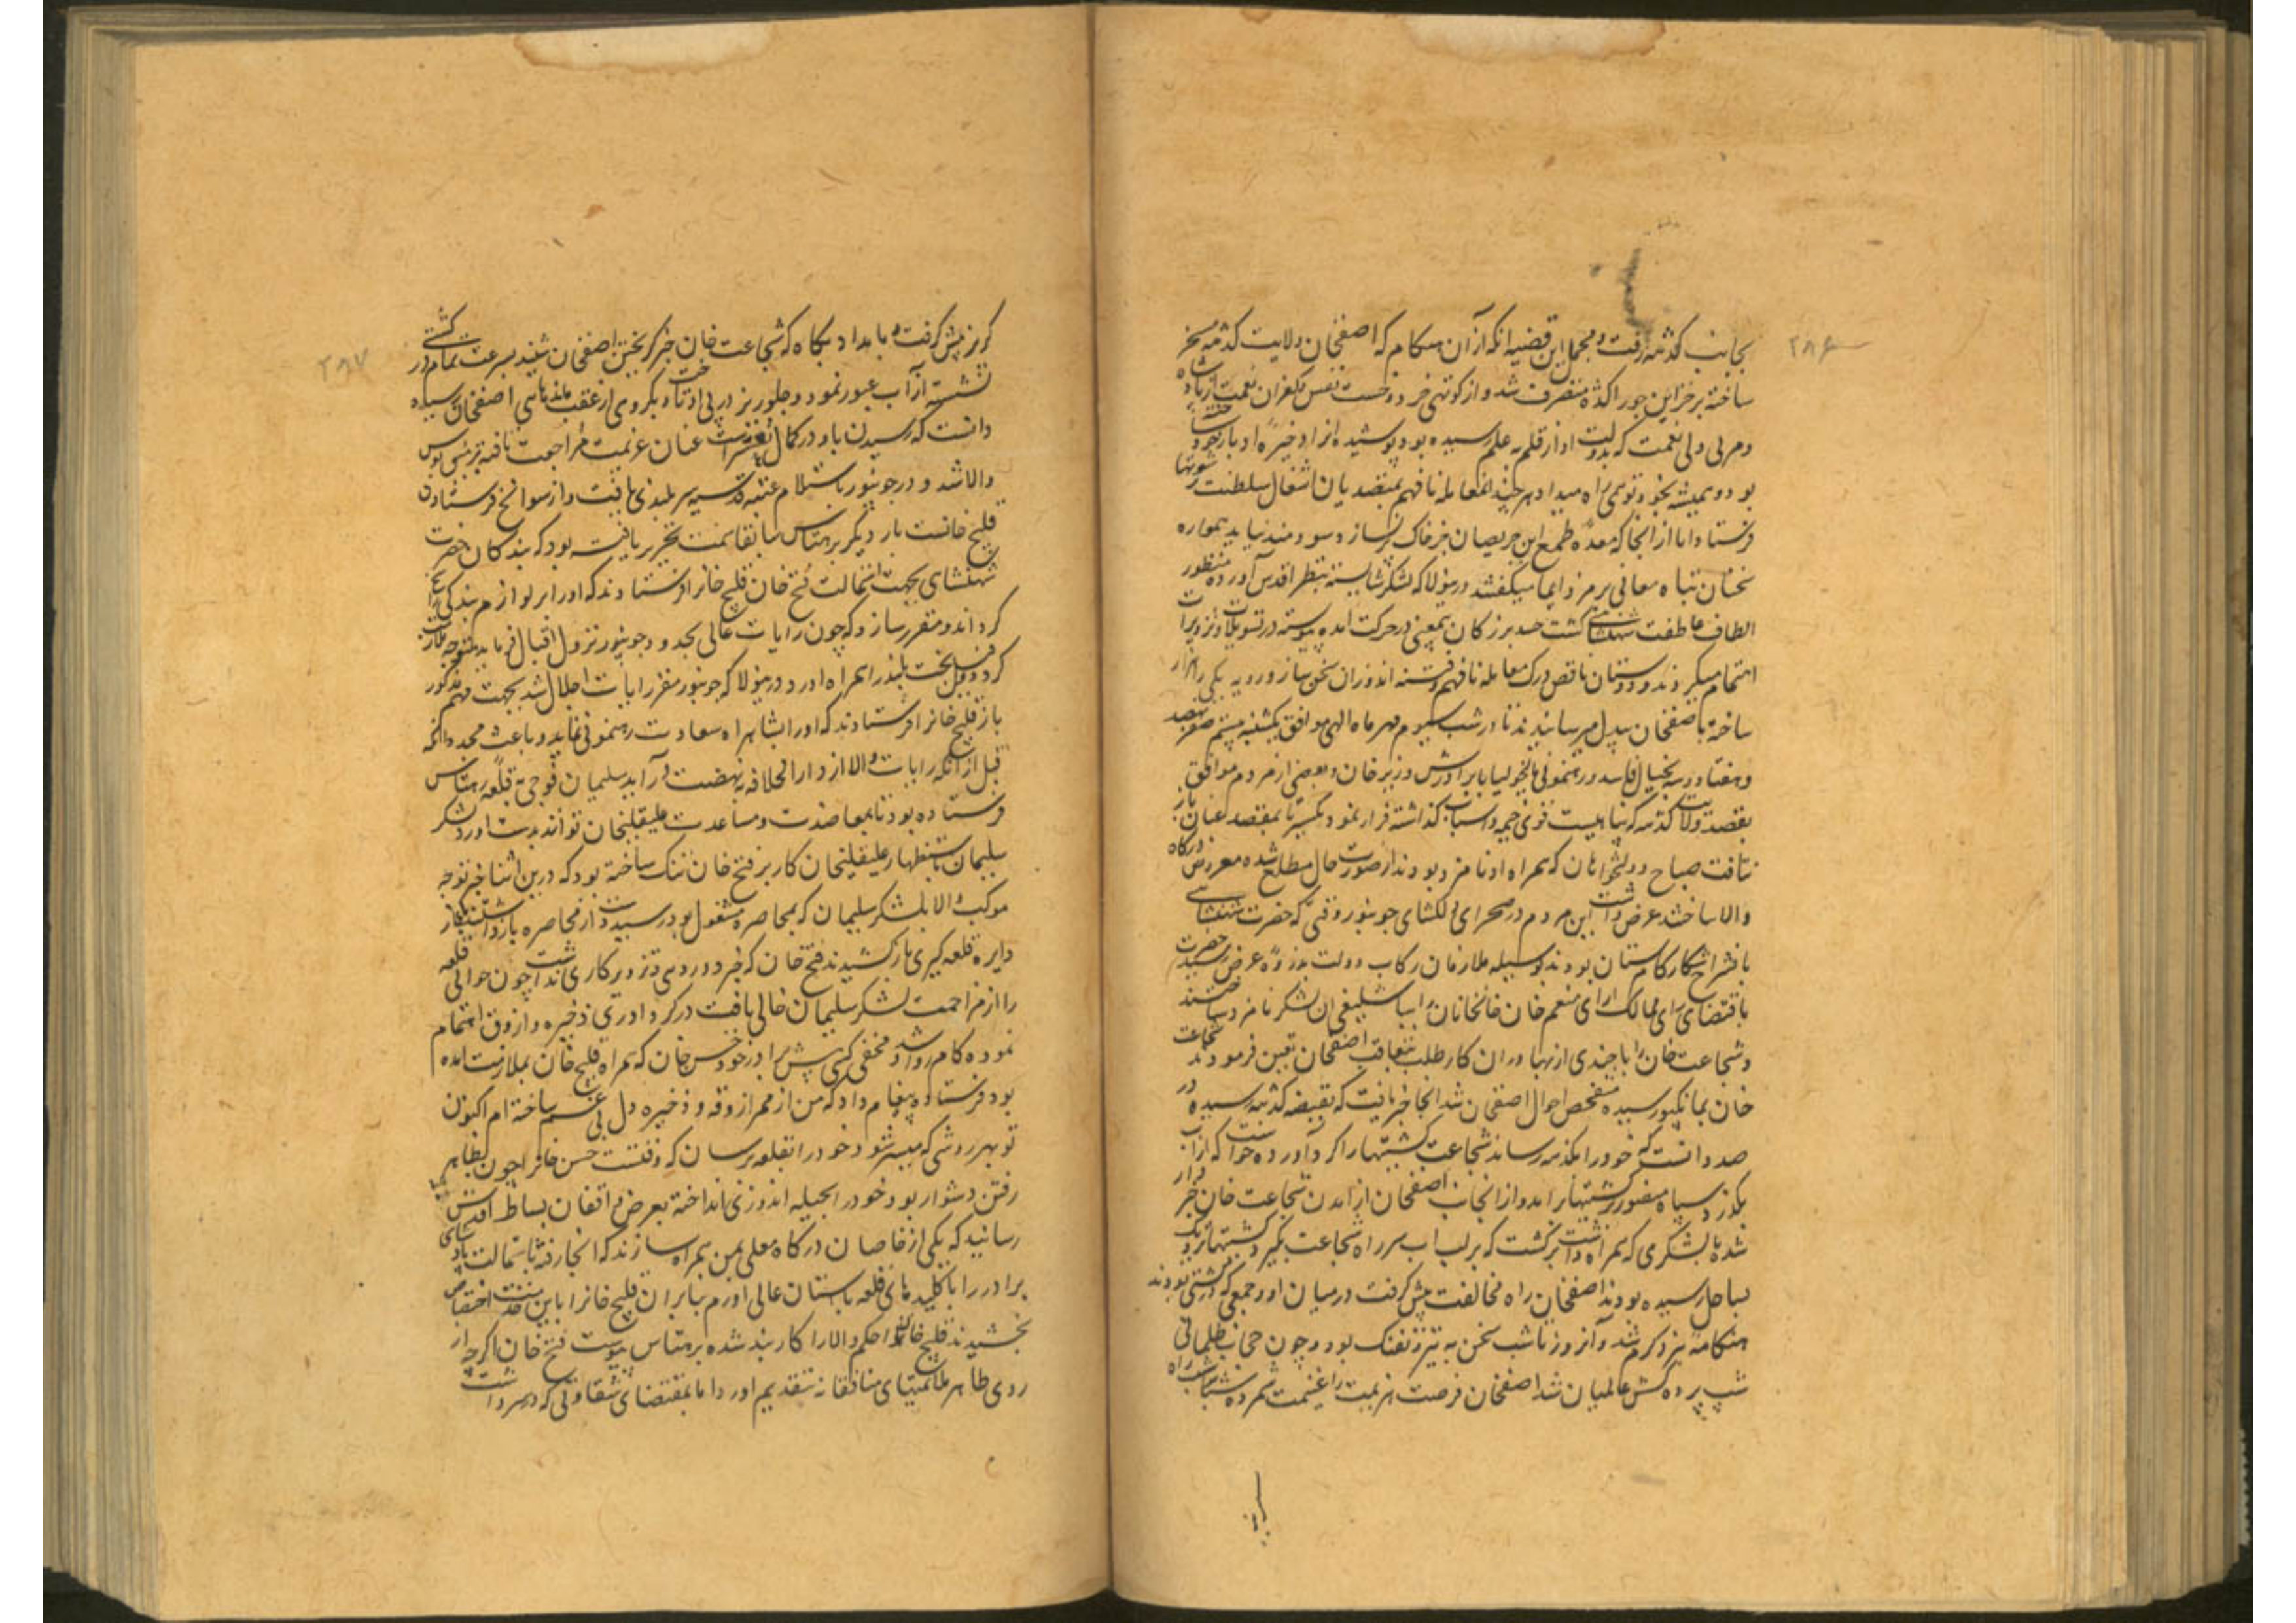 ۲۸۶
بجانب کدهه رفت و مجمل این قضیه انکه از آن هنکام که اصفخان ولایت کدهه مسخر
ساخته بر خزاین جوراکده متصرف شد و از کوتهی خرد و خست نفس بکفران نعمت از پادشاه
و مربی ولی نعمت که بدولت او از قلم به علم رسیده بود پوشیده انرا ذخیره ادبار خود
بود و همیشه بخود توهمی راه میداد هر چند معامله نافهم متصدیان اشغال سلطنت رشوتها
فرستاد اما از انجا که معده طمع این حریصان جز خاک پر نسازد و سودمند نیاید همواره
سخنان تباه معانی برمز و ایما میکفتند درینولا که لشکر شایسته بنظر اقدس آورده منظور
الطاف عاطفت شهنشاهی کشت حسد بزرکان بمعنی در حرکت امده پیوسته در تسویلات و تزویرات
اهتمام میکردند و دوستان ناقص درک معامله نافهم و فتنه اندوزان سخن ساز دورویه یکی را هزار
ساخته باصفخان بیدل میرسانیدند تا در شب سیوم مهر ماه الهی موافق یکشنبه بیستم صفر نهصد
و هفتاد و سه بخیال فاسد و رهنمونی مالیخولیا با برادرش وزیر خان و بعضی از مردم موافق
بقصد ولایت کدهه که بناهیست قوی خیمه و اسباب کذاشته فرار نمود یکسر تا بمقصد عنان باز
نتافت صباح دولتخواهان که همراه او نامزد بودند از صورت حال مطلع شده معروض درکاه
والا ساختند عرض داشت این مردم در صحرای دلکشای جونپور وقتی که حضرت شهنشاهی
بانشراح شکار کامستان بودند بوسیله ملازمان رکاب دولت بذروه عرض رسید حضرت
باقتضای رای ممالک ارای منعم خان خانخانان را بباشلیغی ان لشکر نامزد ساختند
و شجاعت خان را با چندی از بهادران کار طلب بتعاقب اصفخان تعین فرمودند شجاعت
خان بمانکپور رسیده متفحص احوال اصفخان شد انجا خبر یافت که بقصبه کدهه رسیده در
صدد انست که خود را بکدهه رساند شجاعت کشتیها را کرد آورده خواست که از اب
بکذرد سپاه منصور بر کشتیها بر امد و از انجانب اصفخان از امدن شجاعت خان خبردار
شده با لشکری که همراه داشت برکشت که بر لب اب سر راه شجاعت بکیرد کشتیها نزدیک
بساحل رسیده بودند اصفخان راه مخالفت پیش کرفت در میان او و جمعی که در کشتی بودند
هنکامه نبرد کرم شد و آنروز تا شب سخن به تیر و تفنک بود و چون حجاب ظلمانی
شب پرده کش عالمیان شد اصفخان فرصت هزیمت را غنیمت شمرده شباشب راه
۲۸۷
کریز پیش کرفت و بامداد پکاه که شجاعت خان خبر کریختن اصفخان شنید بسرعت تمام در کشتی
نشسته از آب عبور نمود و جلوریز در پی او تاخت و دیکر روی از عقب ماند تا پی اصفخان سیاه
دانست که رسیدن باو در کمال تعذر است عنان عزیمت مراجعت تافته بزمین بوس
والا شد و در جونپور باستلام عتبه قدسیه سربلندی یافت و از سوانح فرستادن
قلیج خانست بار دیکر برهتاس سابقا سمت تحریر یافته بود که بندکان حضرت
شهنشاهی بجهت استمالت فتح خان قلیج خانرا فرستادند که او را بر لوازم بندکی
کرداند و مقرر سازد که چون رایات عالی بحدود جونپور نزول اقبال فرماید متوجه ملازمت
کردد و حسن بخت بلند را همراه اورد درینولا که جونپور مقر رایات اجلال شد بجهت مهم مذکور
باز قلیج خانرا فرستادند که او را بشاهراه سعادت رهنمونی نماید و باعث مجدد انکه
قبل از انکه رایات والا از دارالخلافه بنهضت در آید سلیمان فوجی بقلعه رهتاس
فرستاده بود تا بمعاضدت و مساعدت علیقلیخان تواند بدست اورد لشکر
سلیمان باستظهار علیقلیخان کار بر فتح خان تنک ساخته بود که درین اثنا خبر توجه
موکب والا بلشکر سلیمان که بمحاصره مشغول بود رسید دست از محاصره باز داشتند
دایره قلعه کیری باز کشیدند فتح خان که خبر دورویی و تزویر کاری نداشت چون حوالی قلعه
را از مزاحمت لشکر سلیمان خالی یافت در کرد اوری ذخیره و ازوق اهتمام
نموده کامروا شد و مخفی کس پیش برادر خود حسن خان که همراه قلیج خان بملازمت امده
بود فرستاده پیغام داد که من از ممر ازوقه و ذخیره دل بی غم ساخته ام اکنون
تو بهر روشی که میسر شود خود را بقلعه برسان که وقتست حسن خانرا چون بظاهر
رفتن دشوار بود خود را بحیله اندوزی انداخته بعرض واقفان بساط اقدس
رسانید که یکی از خاصان درکاه معلی بمن همراه سازند که انجا رفته باستمالت پادشاهی
برادر را با کلید های قلعه باستان عالی اورم بنابران قلیج خانرا باین خدمت اختصاص
بخشیدند قلیج خان حکم والا را کاربند شده برهتاس پیوست فتح خان اکرچه از
روی ظاهر ملایمتهای منافقانه بتقدیم اورد اما بمقتضای شقاوتی که در سر داشت